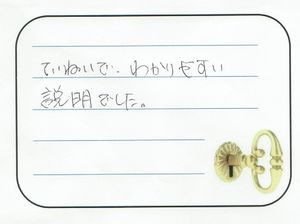 ていねいで、わかりやすい
説明でした。